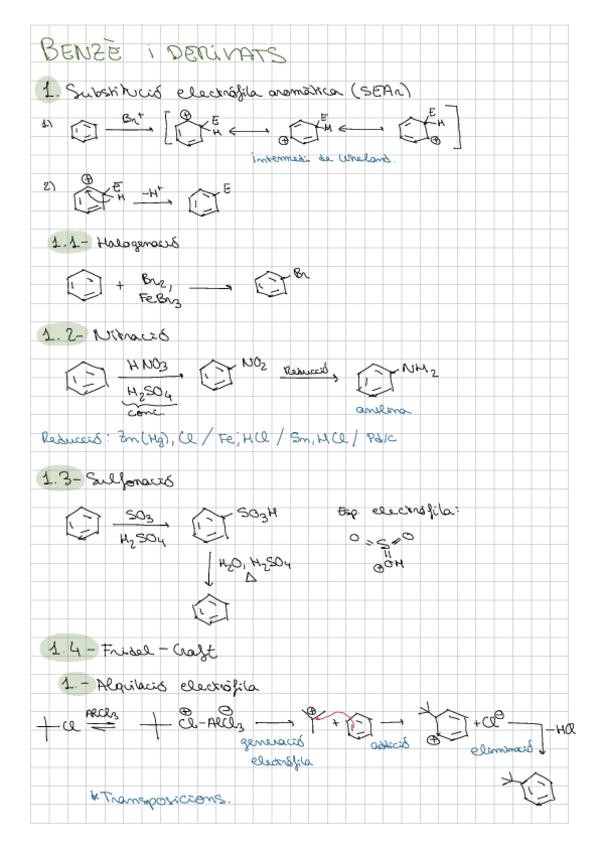 BENZÈ i DERIVATS
1. Substitució electròfila aromàtica (SEAr)
1) Br⁺ ⊕ E H ⊕ E H E H ⊕
intermedi de Wheland.
2) ⊕ E H -H⁺ E
1.1- Halogenació
+ Br2, FeBr3 Br
1.2- Nitració
HNO3 H2SO4 conc NO2 Reducció NH2
anilina
Reducció: Zn(Hg), Cl / Fe, HCl / Sn, HCl / Pd/C
1.3- Sulfonació
SO3 H2SO4 SO3H Esp electròfila:
O S O
⊕OH
H2O, H2SO4
Δ
1.4- Fridel-Craft
1.- Alquilació electròfila
Cl AlCl3 ⊕ Cl-AlCl3 ⊖ ⊕ + ⊕ +Cl⊖ -HCl
generació electròfila addició eliminació
*Transposicions.